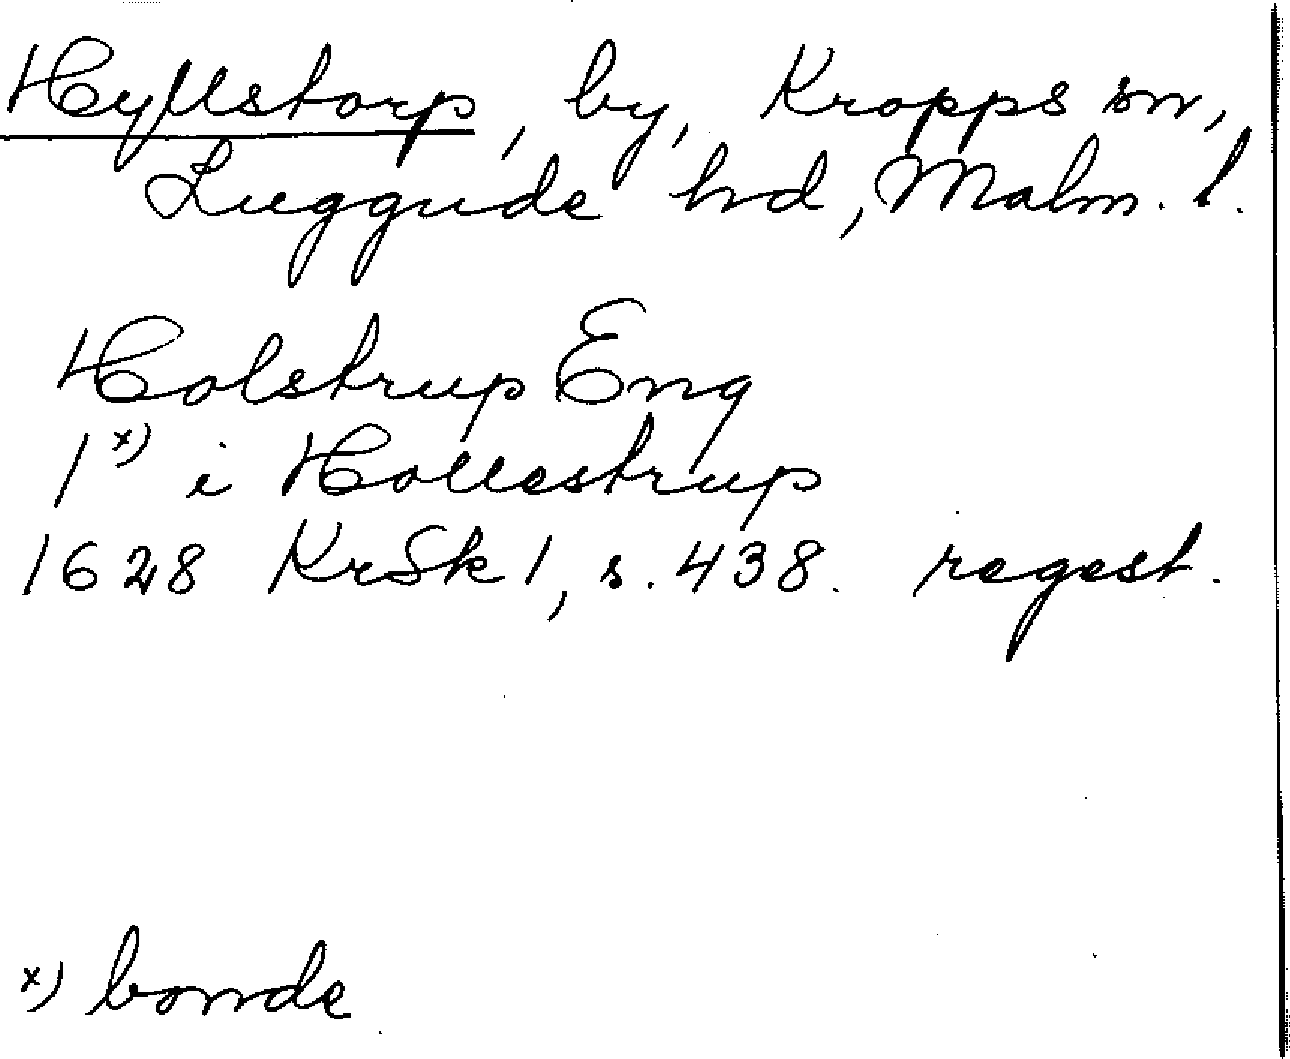 Hyllstorp, by, Kropps sn,
Luggude hd, Malm. l.
Holstrup Eng
1 x) i Hollestrup
1628 KrSk 1, s. 438. regest.
x) bonde